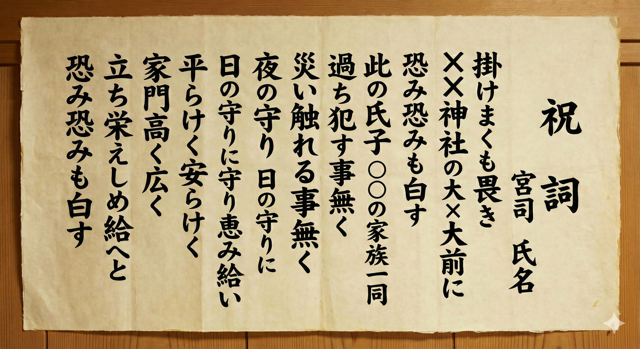 祝詞
宮司 氏名
掛けまくも畏き
××神社の大×大前に
恐み恐みも白す
此の氏子 〇〇の家族一同
過ち犯す事無く
災い触れる事無く
夜の守り 日の守りに
日の守りに守り恵み給い
平らけく安らけく
家門高く広く
立ち栄えしめ給へと
恐み恐みも白す